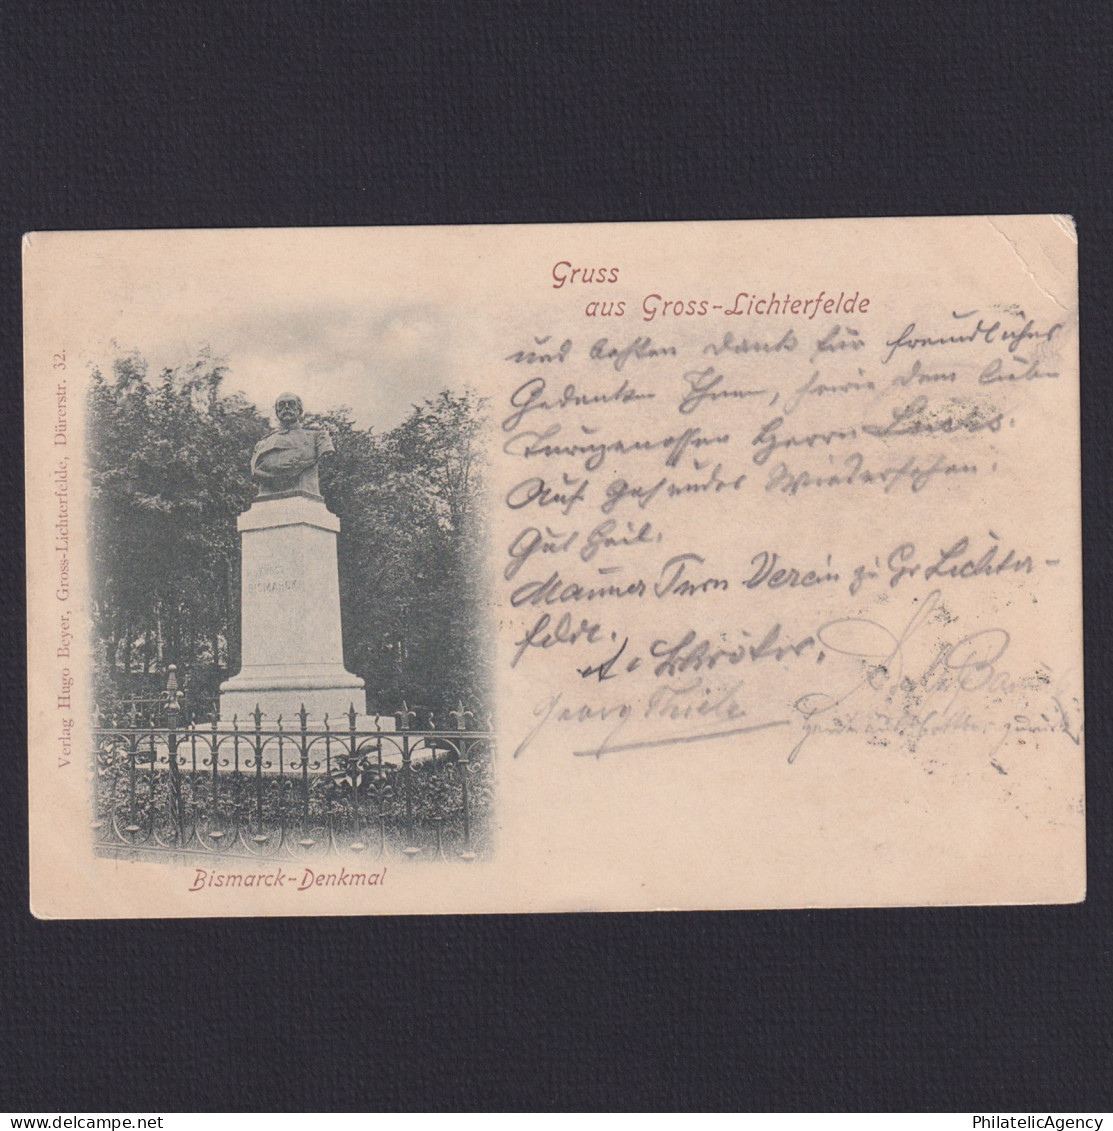 Gruss
aus Gross-Lichterfelde
und besten Dank für freundliches
Gedenken Ihnen, sowie dem lieben
Turngenossen Herrn
Auf gesundes Wiedersehen.
Gut Heil.
Männer Turn Verein zu Gr Lichter-
felde.
Georg Thiele
FÜRST
BISMARCK
Bismarck-Denkmal
Verlag Hugo Beyer, Gross-Lichterfelde, Dürerstr. 32.
PhilatelicAgency